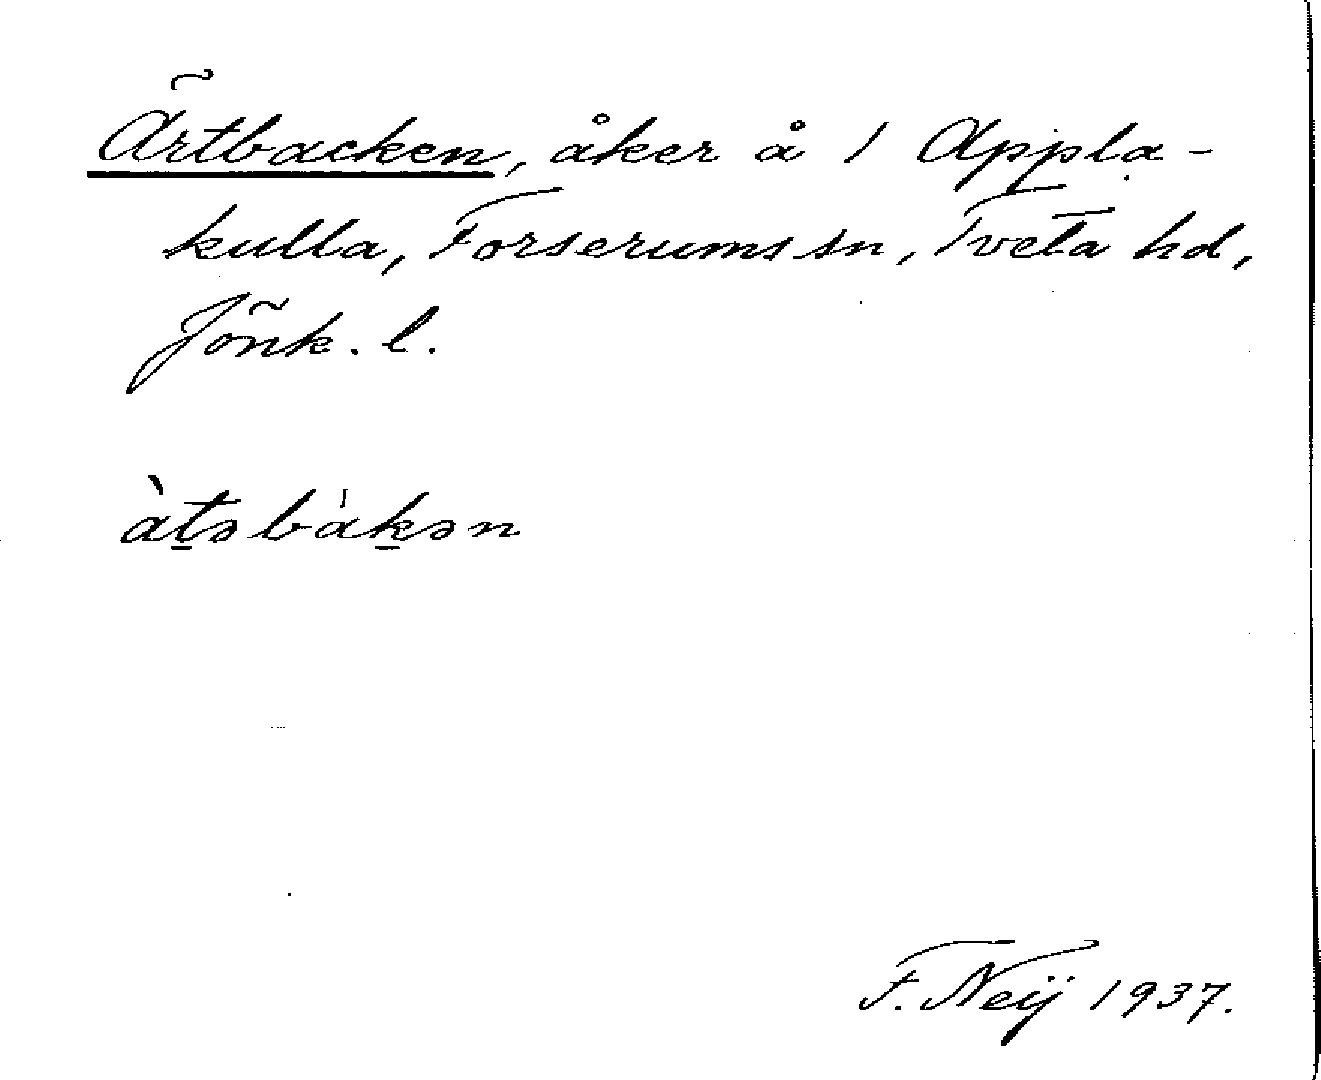 Ärtbacken, åker å 1 Appla-
kulla, Forserums sn, Tveta hd,
Jönk. l.
àt̠əbàk̠ən
F. Neij 1937.